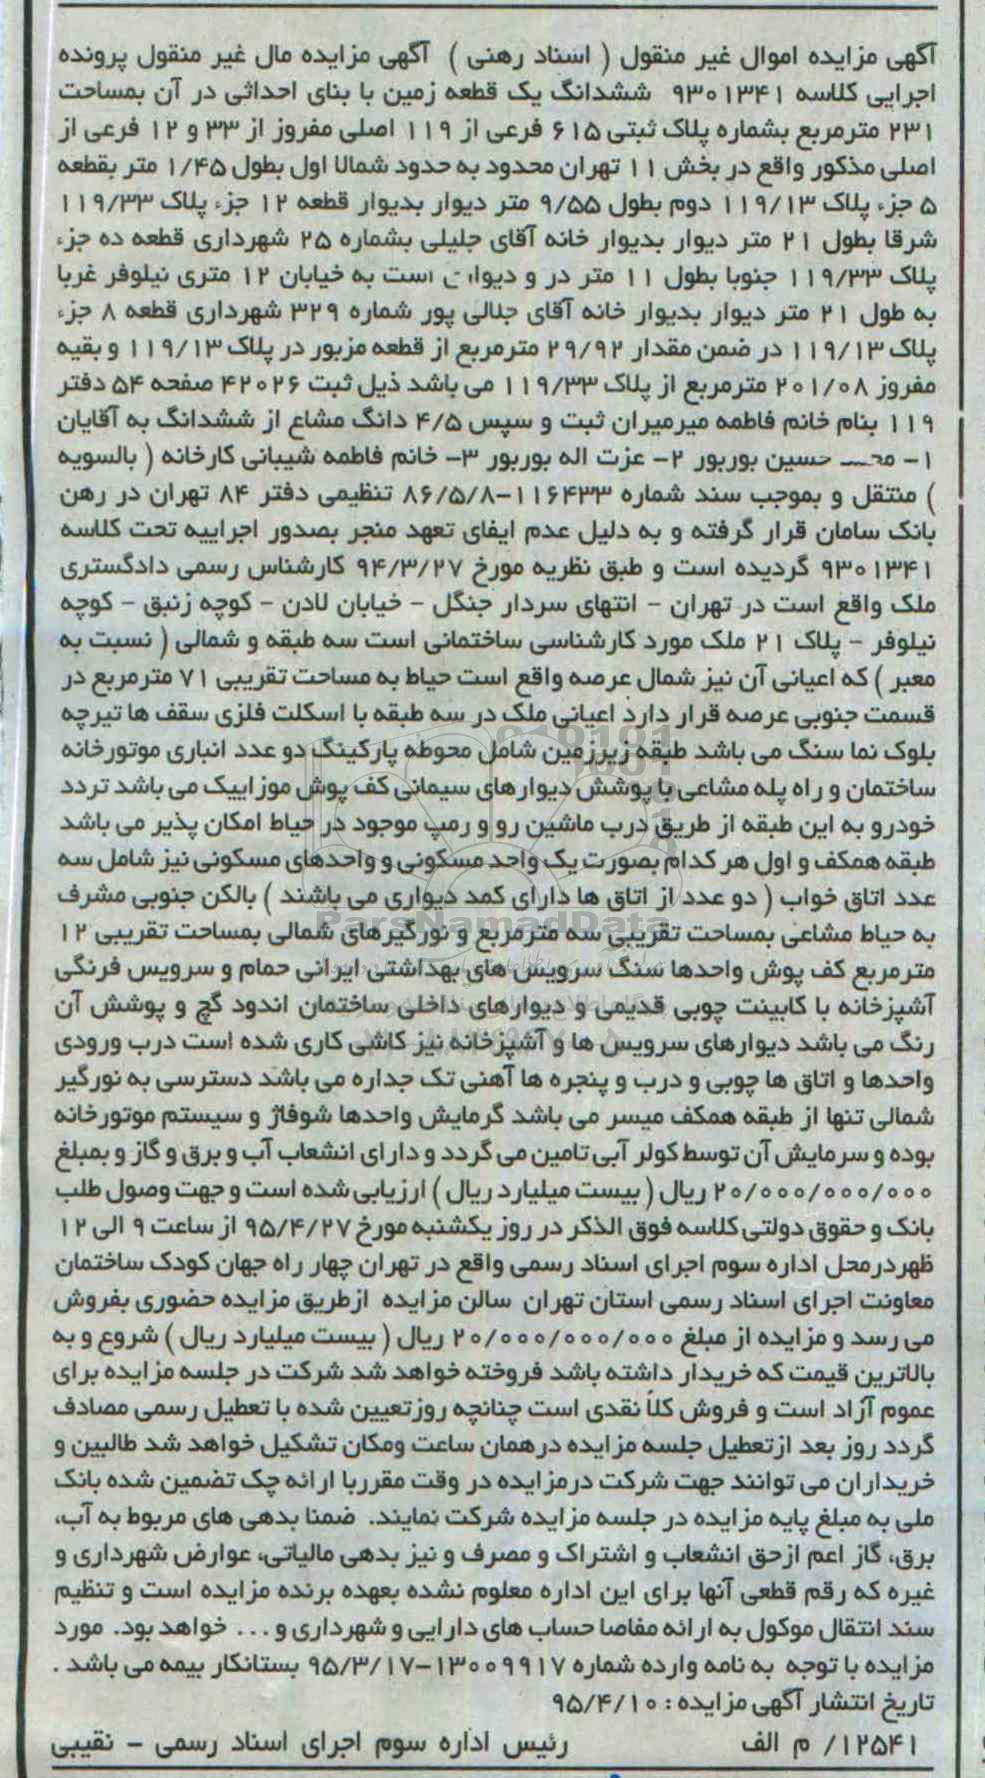 آگهی مزایده اموال غیر منقول ( اسناد رهنی ) آگهی مزایده مال غیر منقول پرونده
اجرایی کلاسه ۹۳۰۱۳۴۱ ششدانگ یک قطعه زمین با بنای احداثی در آن بمساحت
۲۳۱ مترمربع بشماره پلاک ثبتی ۶۱۵ فرعی از ۱۱۹ اصلی مفروز از ۳۳ و ۱۲ فرعی از
اصلی مذکور واقع در بخش ۱۱ تهران محدود به حدود شمالا اول بطول ۱/۴۵ متر بقطعه
۵ جزء پلاک ۱۱۹/۱۳ دوم بطول ۹/۵۵ متر دیوار بدیوار قطعه ۱۲ جزء پلاک ۱۱۹/۳۳
شرقا بطول ۲۱ متر دیوار بدیوار خانه آقای جلیلی بشماره ۲۵ شهرداری قطعه ده جزء
پلاک ۱۱۹/۳۳ جنوبا بطول ۱۱ متر در و دیوار است به خیابان ۱۲ متری نیلوفر غربا
به طول ۲۱ متر دیوار بدیوار خانه آقای جلالی پور شماره ۳۲۹ شهرداری قطعه ۸ جزء
پلاک ۱۱۹/۱۳ در ضمن مقدار ۲۹/۹۲ مترمربع از قطعه مزبور در پلاک ۱۱۹/۱۳ و بقیه
مفروز ۲۰۱/۰۸ مترمربع از پلاک ۱۱۹/۳۳ می باشد ذیل ثبت ۴۲۰۲۶ صفحه ۵۴ دفتر
۱۱۹ بنام خانم فاطمه میرمیران ثبت و سپس ۴/۵ دانگ مشاع از ششدانگ به آقایان
۱- حسین بوربور ۲- عزت اله بوربور ۳- خانم فاطمه شیبانی کارخانه ( بالسویه
) منتقل و بموجب سند شماره ۱۱۶۴۳۳-۸۶/۵/۸ تنظیمی دفتر ۸۴ تهران در رهن
بانک سامان قرار گرفته و به دلیل عدم ایفای تعهد منجر بصدور اجراییه تحت کلاسه
۹۳۰۱۳۴۱ گردیده است و طبق نظریه مورخ ۹۴/۳/۲۷ کارشناس رسمی دادگستری
ملک واقع است در تهران - انتهای سردار جنگل - خیابان لادن - کوچه زنبق - کوچه
نیلوفر - پلاک ۲۱ ملک مورد کارشناسی ساختمانی است سه طبقه و شمالی ( نسبت به
معبر ) که اعیانی آن نیز شمال عرصه واقع است حیاط به مساحت تقریبی ۷۱ مترمربع در
قسمت جنوبی عرصه قرار دارد اعیانی ملک در سه طبقه با اسکلت فلزی سقف ها تیرچه
بلوک نما سنگ می باشد طبقه زیرزمین شامل محوطه پارکینگ دو عدد انباری موتورخانه
ساختمان و راه پله مشاعی با پوشش دیوارهای سیمانی کف پوش موزاییک می باشد تردد
خودرو به این طبقه از طریق درب ماشین رو و رمپ موجود در حیاط امکان پذیر می باشد
طبقه همکف و اول هر کدام بصورت یک واحد مسکونی و واحدهای مسکونی نیز شامل سه
عدد اتاق خواب ( دو عدد از اتاق ها دارای کمد دیواری می باشند ) بالکن جنوبی مشرف
به حیاط مشاعی بمساحت تقریبی سه مترمربع و نورگیرهای شمالی بمساحت تقریبی ۱۲
مترمربع کف پوش واحدها سنگ سرویس های بهداشتی ایرانی حمام و سرویس فرنگی
آشپزخانه با کابینت چوبی قدیمی و دیوارهای داخلی ساختمان اندود گچ و پوشش آن
رنگ می باشد دیوارهای سرویس ها و آشپزخانه نیز کاشی کاری شده است درب ورودی
واحدها و اتاق ها چوبی و درب و پنجره ها آهنی تک جداره می باشد دسترسی به نورگیر
شمالی تنها از طبقه همکف میسر می باشد گرمایش واحدها شوفاژ و سیستم موتورخانه
بوده و سرمایش آن توسط کولر آبی تامین می گردد و دارای انشعاب آب و برق و گاز و بمبلغ
۲۰/۰۰۰/۰۰۰/۰۰۰ ریال ( بیست میلیارد ریال ) ارزیابی شده است و جهت وصول طلب
بانک و حقوق دولتی کلاسه فوق الذکر در روز یکشنبه مورخ ۹۵/۴/۲۷ از ساعت ۹ الی ۱۲
ظهردرمحل اداره سوم اجرای اسناد رسمی واقع در تهران چهار راه جهان کودک ساختمان
معاونت اجرای اسناد رسمی استان تهران سالن مزایده ازطریق مزایده حضوری بفروش
می رسد و مزایده از مبلغ ۲۰/۰۰۰/۰۰۰/۰۰۰ ریال ( بیست میلیارد ریال ) شروع و به
بالاترین قیمت که خریدار داشته باشد فروخته خواهد شد شرکت در جلسه مزایده برای
عموم آزاد است و فروش کلاً نقدی است چنانچه روزتعیین شده با تعطیل رسمی مصادف
گردد روز بعد ازتعطیل جلسه مزایده درهمان ساعت ومکان تشکیل خواهد شد طالبین و
خریداران می توانند جهت شرکت درمزایده در وقت مقرربا ارائه چک تضمین شده بانک
ملی به مبلغ پایه مزایده در جلسه مزایده شرکت نمایند. ضمنا بدهی های مربوط به آب،
برق، گاز اعم ازحق انشعاب و اشتراک و مصرف و نیز بدهی مالیاتی، عوارض شهرداری و
غیره که رقم قطعی آنها برای این اداره معلوم نشده بعهده برنده مزایده است و تنظیم
سند انتقال موکول به ارائه مفاصا حساب های دارایی و شهرداری و ... خواهد بود. مورد
مزایده با توجه به نامه وارده شماره ۱۳۰۰۹۹۱۷-۹۵/۳/۱۷ بستانکار بیمه می باشد .
تاریخ انتشار آگهی مزایده : ۹۵/۴/۱۰
۱۲۵۴۱/ م الف رئیس اداره سوم اجرای اسناد رسمی - نقیبی
ParsNamadData